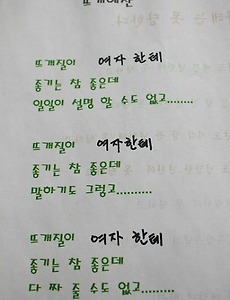 뜨개예찬
뜨개질이 여자 한테
좋기는 참 좋은데
일일이 설명 할 수도 없고........
뜨개질이 여자 한테
좋기는 참 좋은데
말하기도 그렇고..........
뜨개질이 여자 한테
좋기는 참 좋은데
다 짜 줄 수도 없고.........